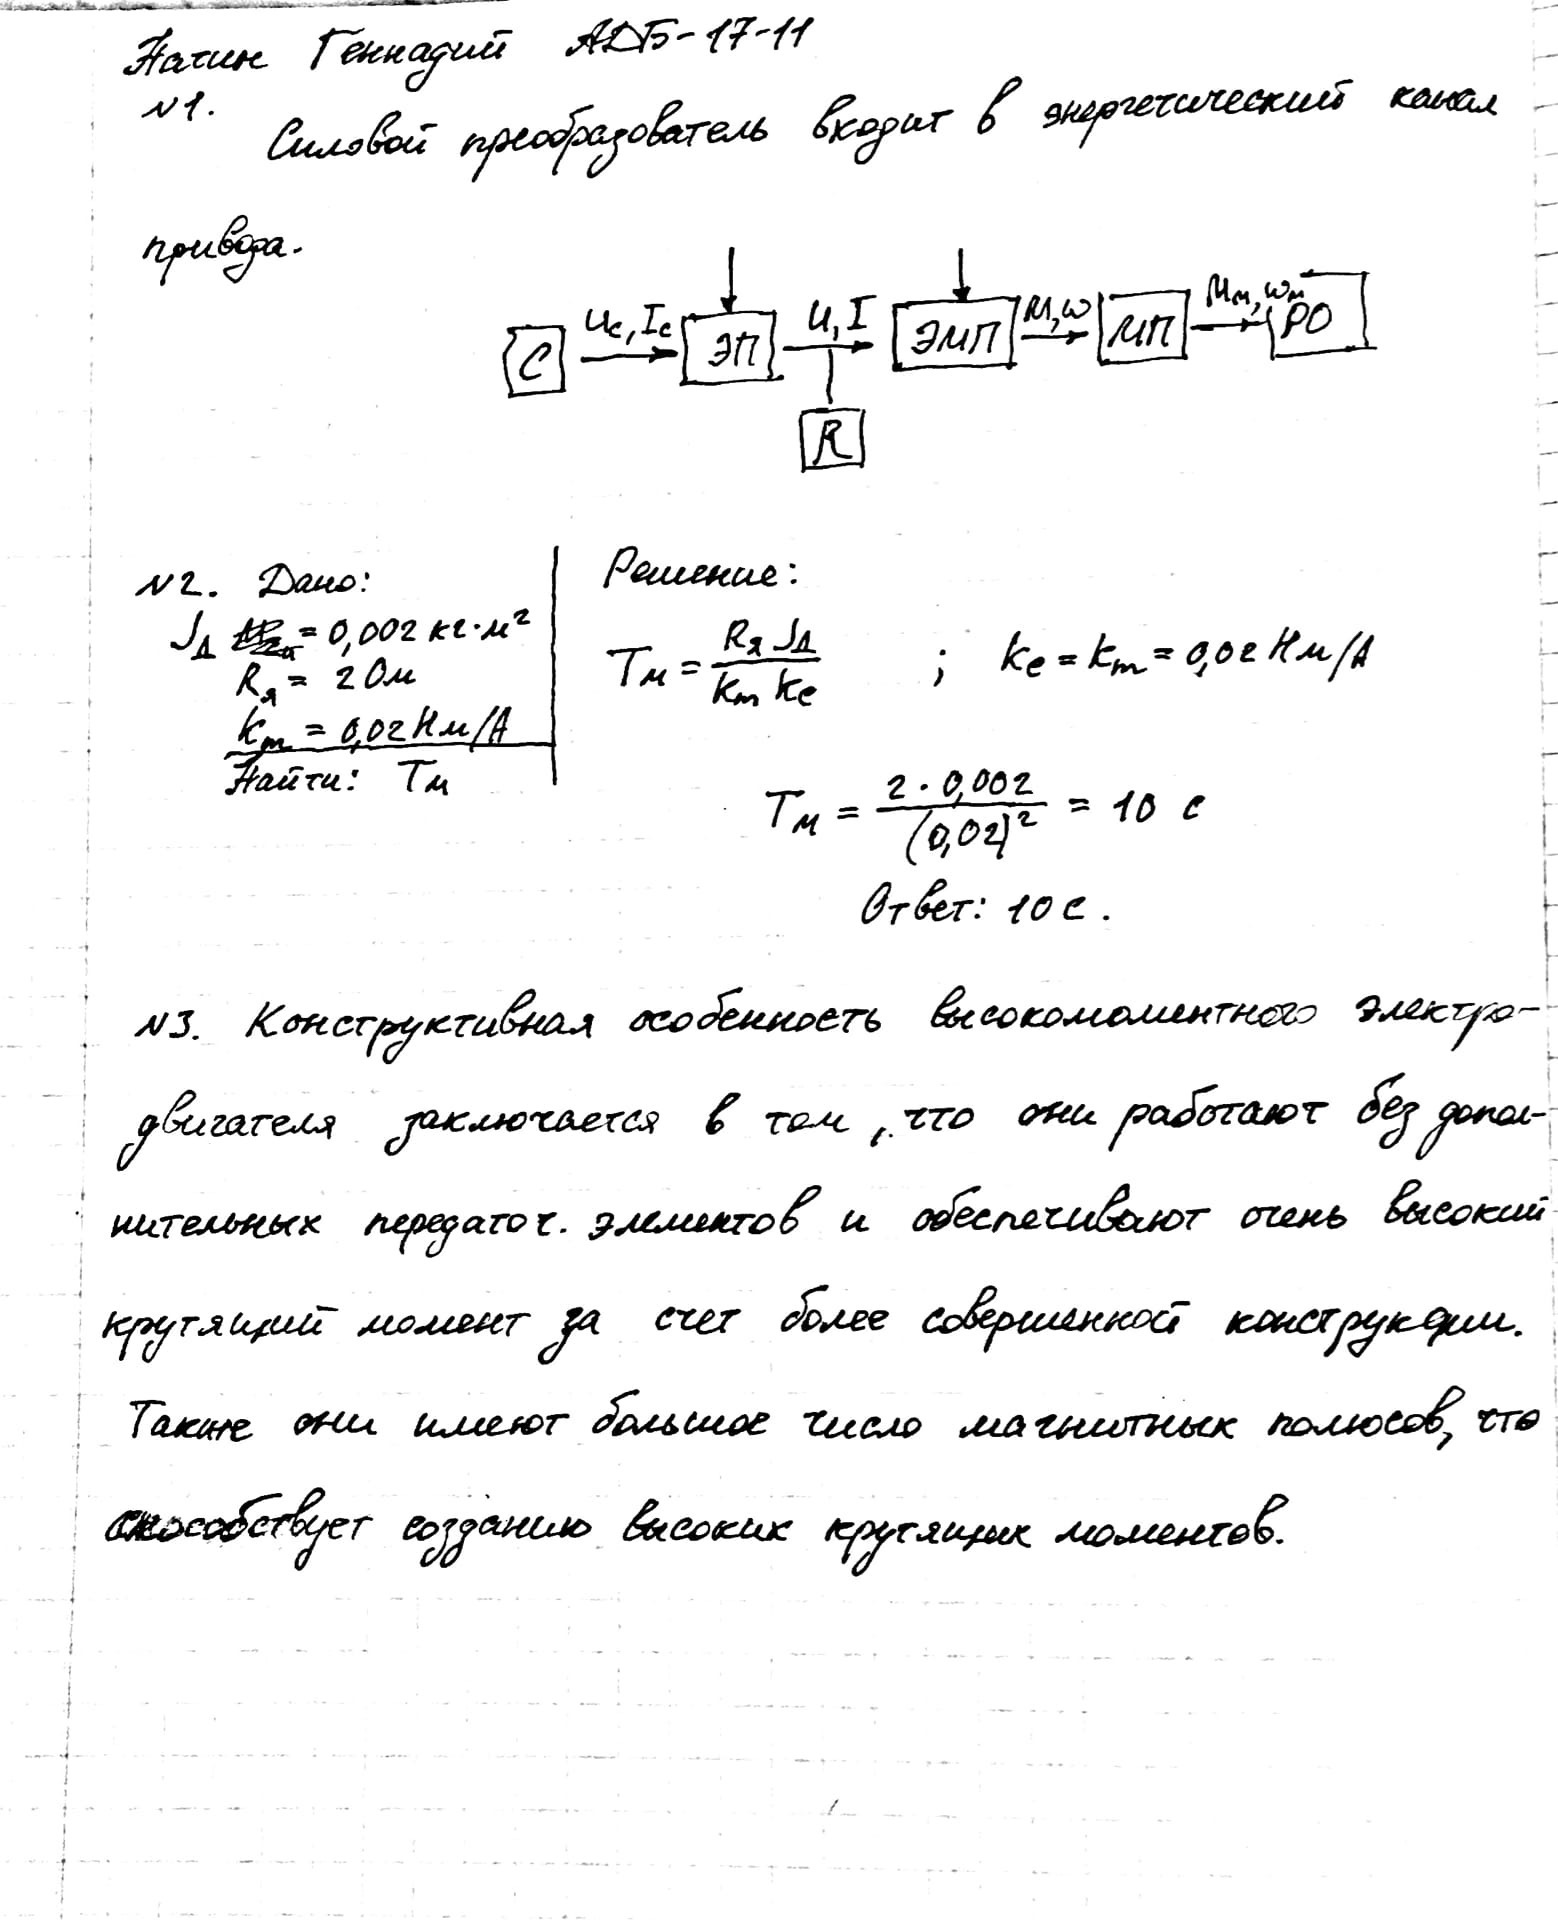 Начин Геннадий АДБ-17-11
№1.
Силовой преобразователь входит в энергетический канал
привода.
Uc, Ic
U, I
M, ω
Mм, ωм
С
ЭП
ЭМП
МП
РО
R
№2. Дано:
Jд = 0,002 кг·м²
Rя = 2 Ом
km = 0,02 Нм/А
Найти: Tм
Решение:
Tм = Rя Jд / km ke ; ke = km = 0,02 Нм/А
Tм = 2 · 0,002 / (0,02)² = 10 с
Ответ: 10 с.
№3. Конструктивная особенность высокомоментного электро-
двигателя заключается в том, что они работают без допол-
нительных передаточ. элементов и обеспечивают очень высокий
крутящий момент за счет более совершенной конструкции.
Также они имеют большое число магнитных полюсов, что
способствует созданию высоких крутящих моментов.